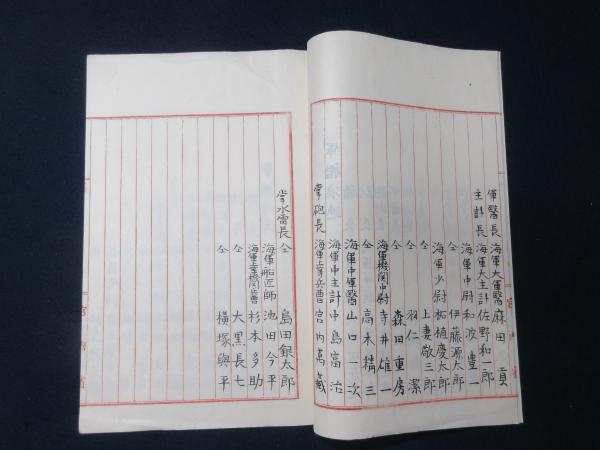 軍醫長 海軍大軍醫 麻田 貢
主計長 海軍大主計 佐野和一郎
海軍中尉 和波豊一
仝 伊藤源太郎
海軍少尉 柘植慶太郎
仝 上妻敬三郎
仝 羽仁 潔
仝 森田重房
海軍機関中尉 寺井雄一
仝 髙木精三
海軍中軍醫 山口一次
海軍中主計 中島富治
掌砲長 海軍上等兵曹 宮内萬藏
掌水雷長 仝 島田銀太郎
海軍船匠師 池田今平
海軍上等機関兵曹 杉本多助
仝 大黒長七
仝 横塚與平